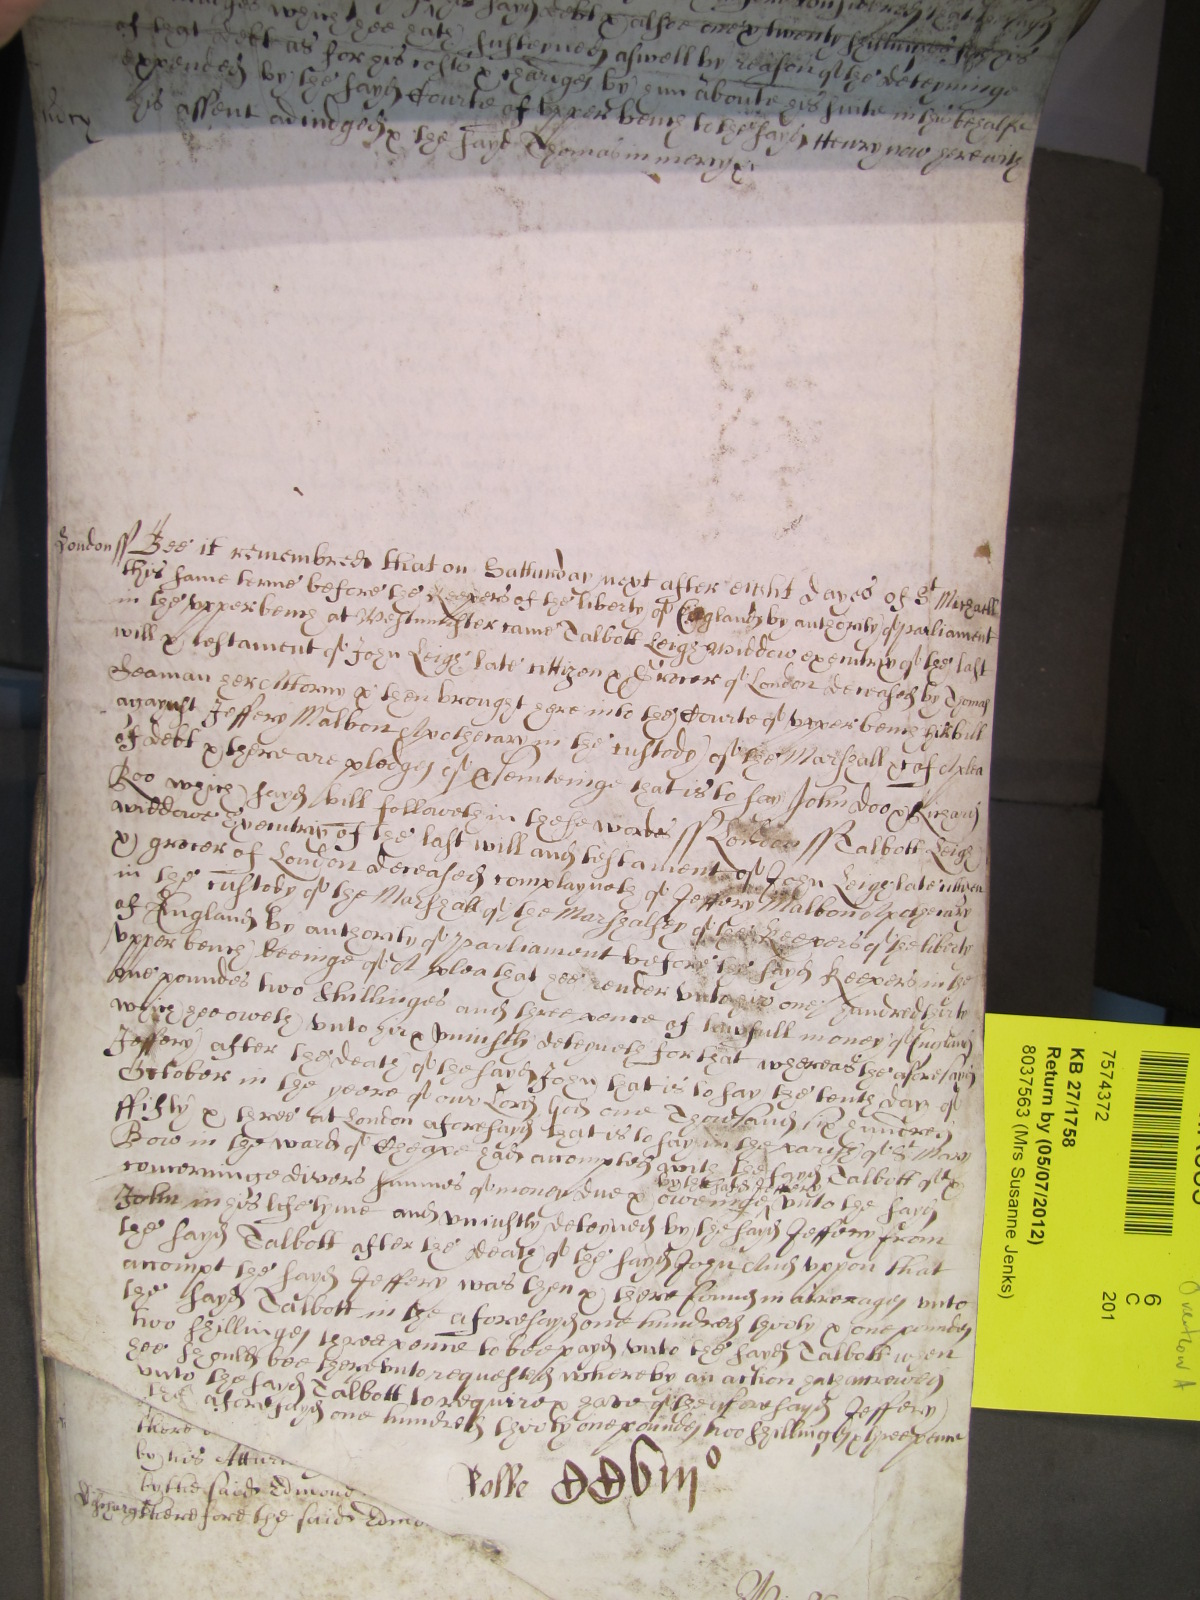 of that debt as for his costs & chardges by him aboute his suite in this behalfe
expended by the sayd Courte of Upper bench to the sayd Henry now here with
his assent adiudged & the sayd Thomas in mercy &c
London ss Bee it remembred that on Satturday next after eight dayes of St Michaell
this same terme before the Keepers of the liberty of England by authority of parliament
in the upper bench at Westminster came Talbott Leigh widdow executrix of the last
will & testament of John Leigh late cittizen & Grocer of London deceased by Thomas
Seaman her Attorny & then brought here into the Courte of upper bench hir bill
against Jeffery Malbon Apothecary in the custody of the Marshall &c of a plea
of debt & there are pledges of prosecuteinge that is to say John Doo & Richard
Roo which sayd bill followeth in these wordes ss London ss Talbott Leigh
widdowe Executrix of the last will and testament of John Leigh late citizen
& grocer of London deceased complayneth of Jeffery Malbon Apothecary
in the custody of the Marshall of the Marshalsey of the Keepers of the liberty
of England by authority of parliament before the sayd Keepers in the
upper bench beeinge of A plea that hee render unto hir one hundred thirty
one poundes two shillinges and three pence of lawfull money of England
which hee oweth unto hir & uniustly deteyneth for that whereas the aforesayd
Jeffery after the death of the sayd John that is to say the tenth day of
October in the yeare of our Lord God one Thowsand six hundred
fifty & three At London aforesayd that is to say in the parish of St Mary
Bow in the ward of Cheape had accompted with the sayd Talbott of &
concerninge divers summes of money due & oweinge by the said Jeffery unto the sayd
John in his life tyme and uniustly deteyned by the sayd Jeffery from
the sayd Talbott after the death of the sayd John And uppon that
accompt the sayd Jeffery was then & there found in arrerages unto
the sayd Talbott in the aforesayd one hundred thirty & one poundes
two shillinges three pence to bee payd unto the sayd Talbott when
hee should bee thereunto requested whereby an action hath accrewed
unto the sayd Talbott to require & have of the aforesayd Jeffery
the aforesayd one hundred thirty one poundes two shillinges & three pence
there
by his Attur
by the said Edmond
Discharg therefore the said Edmo
Rolfe
7574372
KB 27/1758
Return by (05/07/2012)
8037563 (Mrs Susanne Jenks)
6
C
201
Overflow A